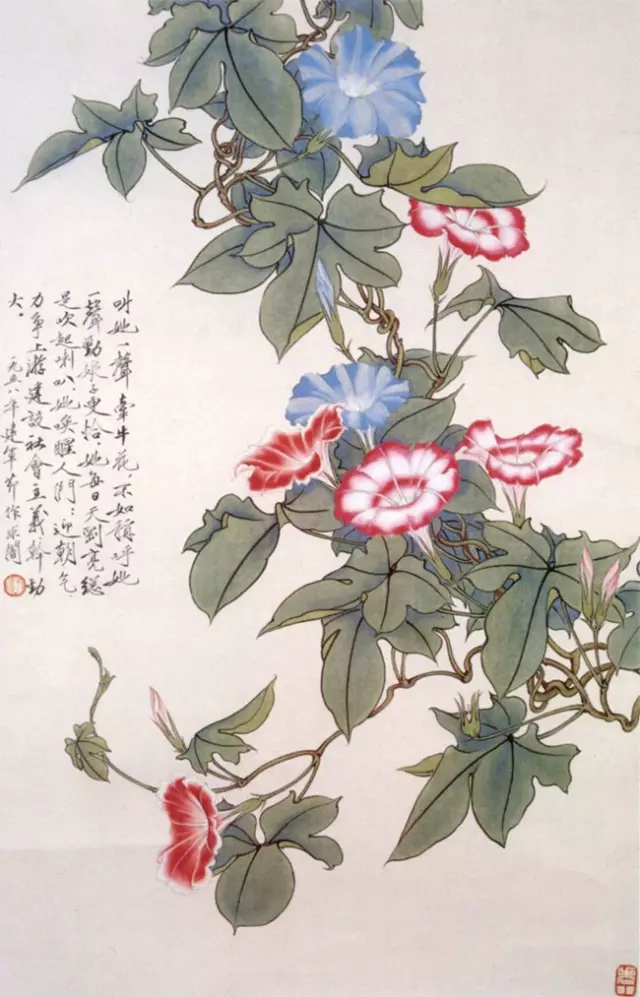 叫她一聲牽牛花，不如稱呼她
一聲勤娘子更恰；她每日天剛亮總
是吹起喇叭，她喚醒人們：迎朝氣，
力爭上游建設社會主義幹勁
大。一九五八年建軍節作 非闇